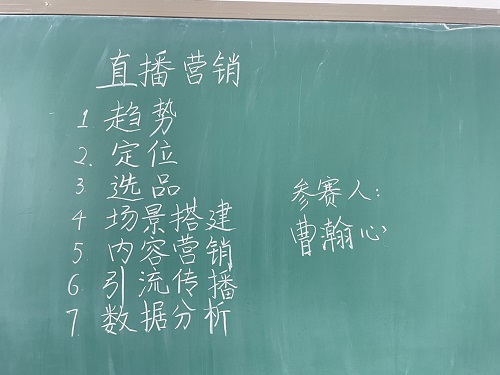 直播营销
1 趋势
2. 定位
3 选品
4 场景搭建
5. 内容营销
6. 引流传播
7. 数据分析
参赛人:
曹瀚心